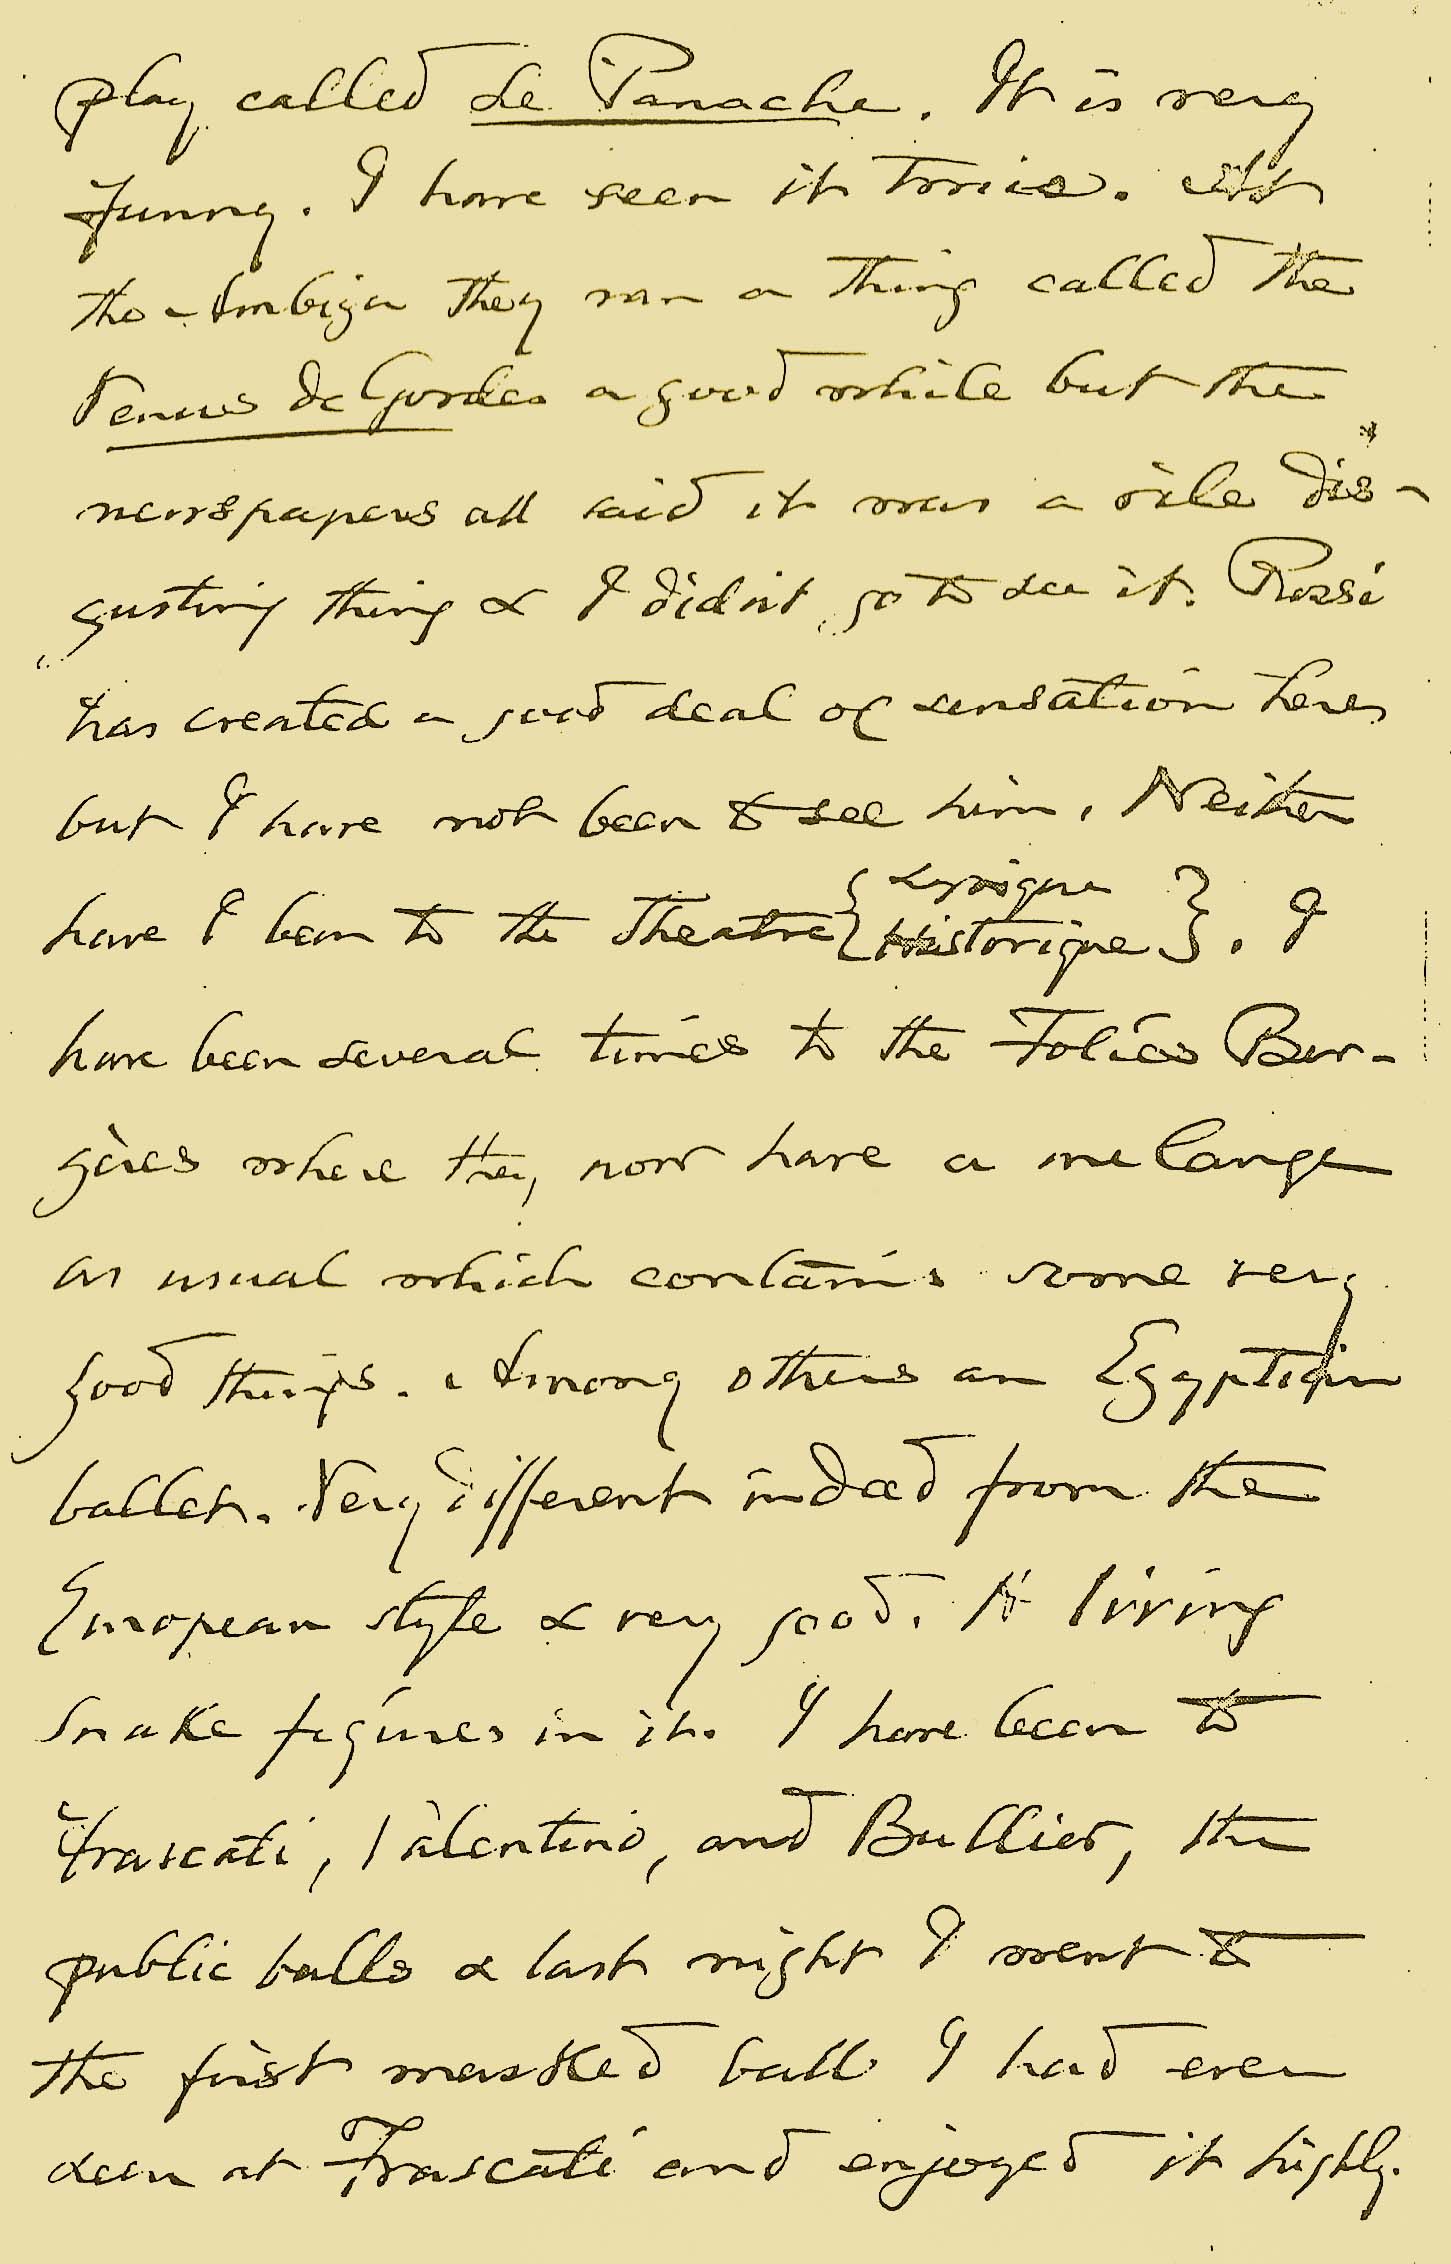 play called Le Panache. It is very
funny. I have seen it twice. At
the Ambigu they ran a thing called the
Venus de Gordes a good while but the
newspapers all said it was a vile dis-
gusting thing & I didnt go to see it. Rossi
has created a good deal of sensation here
but I have not been to see him. Neither
have I been to the Theatre { Lyrique
Historique } . I
have been several times to the Folies Ber-
gères where they now have a melange
as usual which contains some very
good things. Among others an Egyptian
ballet. Very different indeed from the
European style & very good. A living
snake figures in it. I have been to
Frascati, Valentino, and Bullier, the
public balls & last night I went to
the first masked ball I had ever
seen at Frascati and enjoyed it highly.